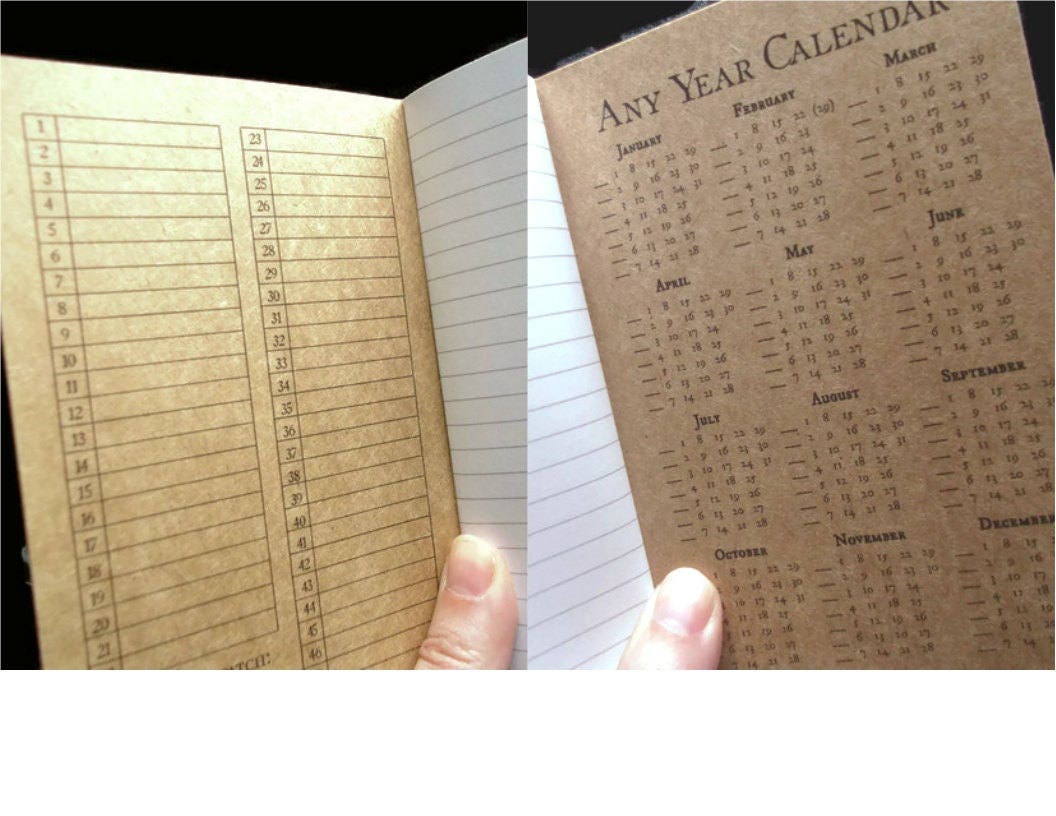 1
2
3
4
5
6
7
8
9
10
11
12
13
14
15
16
17
18
19
20
21
23
24
25
26
27
28
29
30
31
32
33
34
35
36
37
38
39
40
41
42
43
44
45
46
ATCH:
ANY YEAR CALENDAR
JANUARY
1 8 15 22 29
2 9 16 23 30
3 10 17 24 31
4 11 18 25
5 12 19 26
6 13 20 27
7 14 21 28
FEBRUARY
1 8 15 22 (29)
2 9 16 23
3 10 17 24
4 11 18 25
5 12 19 26
6 13 20 27
7 14 21 28
MARCH
1 8 15 22 29
2 9 16 23 30
3 10 17 24 31
4 11 18 25
5 12 19 26
6 13 20 27
7 14 21 28
APRIL
1 8 15 22 29
2 9 16 23 30
3 10 17 24
4 11 18 25
5 12 19 26
6 13 20 27
7 14 21 28
MAY
1 8 15 22 29
2 9 16 23 30
3 10 17 24 31
4 11 18 25
5 12 19 26
6 13 20 27
7 14 21 28
JUNE
1 8 15 22 29
2 9 16 23 30
3 10 17 24
4 11 18 25
5 12 19 26
6 13 20 27
7 14 21 28
JULY
1 8 15 22 29
2 9 16 23 30
3 10 17 24 31
4 11 18 25
5 12 19 26
6 13 20 27
7 14 21 28
AUGUST
1 8 15 22 29
2 9 16 23 30
3 10 17 24 31
4 11 18 25
5 12 19 26
6 13 20 27
7 14 21 28
SEPTEMBER
1 8 15 22
2 9 16 23
3 10 17 24
4 11 18 25
5 12 19 26
6 13 20 27
7 14 21 28
OCTOBER
1 8 15 22 29
9 16 23 30
10 17 24 31
11 18 25
12 19 26
13 20 27
7 14 21 28
NOVEMBER
1 8 15 22 29
2 9 16 23 30
3 10 17 24
4 11 18 25
5 12 19 26
6 13 20 27
7 14 21 28
DECEMBER
1 8 15
2 9 16
3 10 17
4 11 18
5 12
6 13
7 14